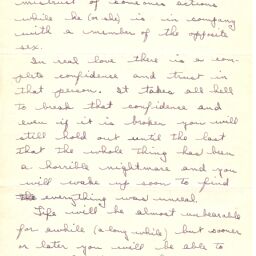 mistrust of someones actions
while he (or she) is in company
with a member of the opposite
sex.
In real love there is a com-
plete confidence and trust in
that person. It takes all hell
to break that confidence and
even if it is broken you will
still hold out until the last
that the whole thing has been
a horrible nightmare and you
will wake up soon to find
the everything was unreal.
Life will be almost unbearable
for awhile (a long while) but sooner
or later you will be able to